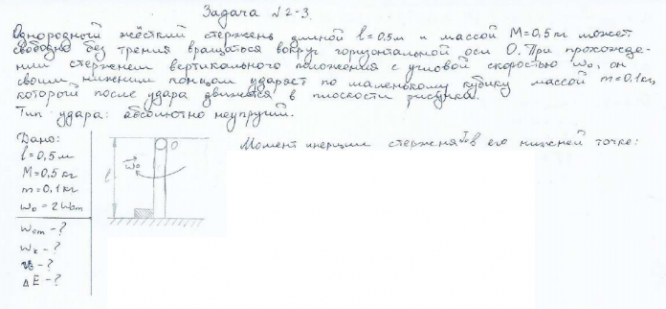 Задача №2-3.
Однородный жёсткий стержень длиной l=0,5м и массой M=0,5кг может
свободно без трения вращаться вокруг горизонтальной оси О. При прохожде-
нии стержнем вертикального положения с угловой скоростью ω₀, он
своим нижним концом ударяет по маленькому кубику массой m=0.1кг,
который после удара движется в плоскости рисунка.
Тип удара: абсолютно неупругий.
Дано:
l=0,5м
M=0,5кг
m=0.1кг
ω₀=2ωсm
ωсm-?
ωк-?
-?
ΔE-?
l
O
ω₀
Момент инерции стержня I в его нижней точке: